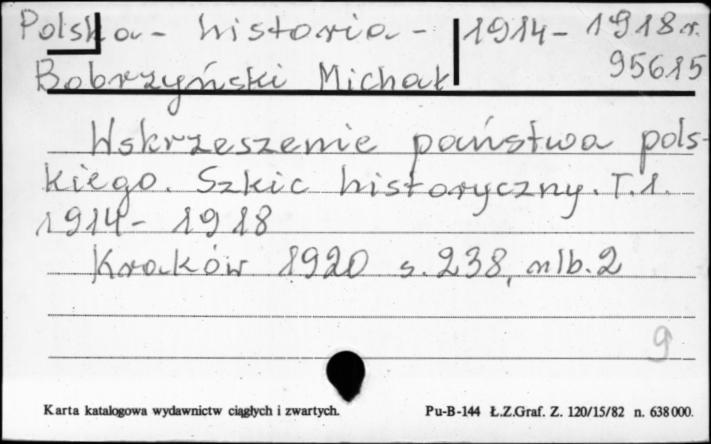 Polska - historia - 1914 - 1918 r.
95615
Bobrzyński Michał
Wskrzeszenie państwa pols-
kiego. Szkic historyczny. T. 1.
1914 - 1918
Kraków 1920 s. 238, nlb. 2
9
Karta katalogowa wydawnictw ciągłych i zwartych. Pu-B-144 Ł.Z.Graf. Z. 120/15/82 n. 638000.